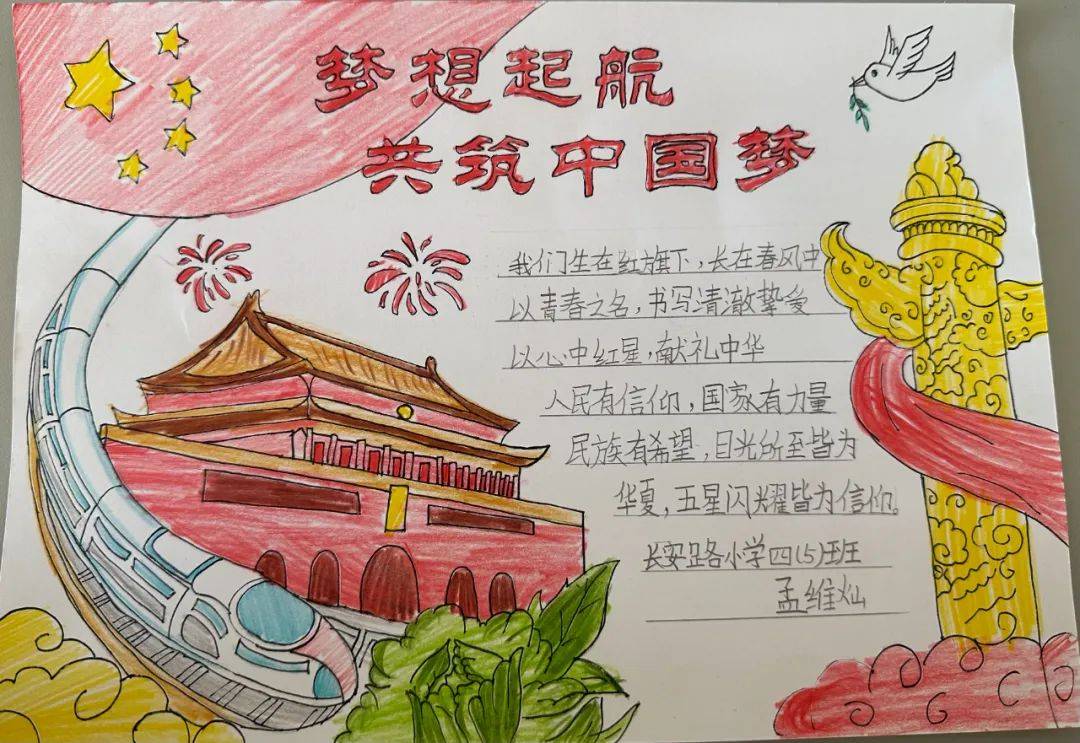 梦想起航
共筑中国梦
我们生在红旗下,长在春风中
以青春之名,书写清澈挚爱
以心中红星,献礼中华
人民有信仰,国家有力量
民族有希望,目光所至皆为
华夏,五星闪耀皆为信仰。
长安路小学四(5)班
孟维灿